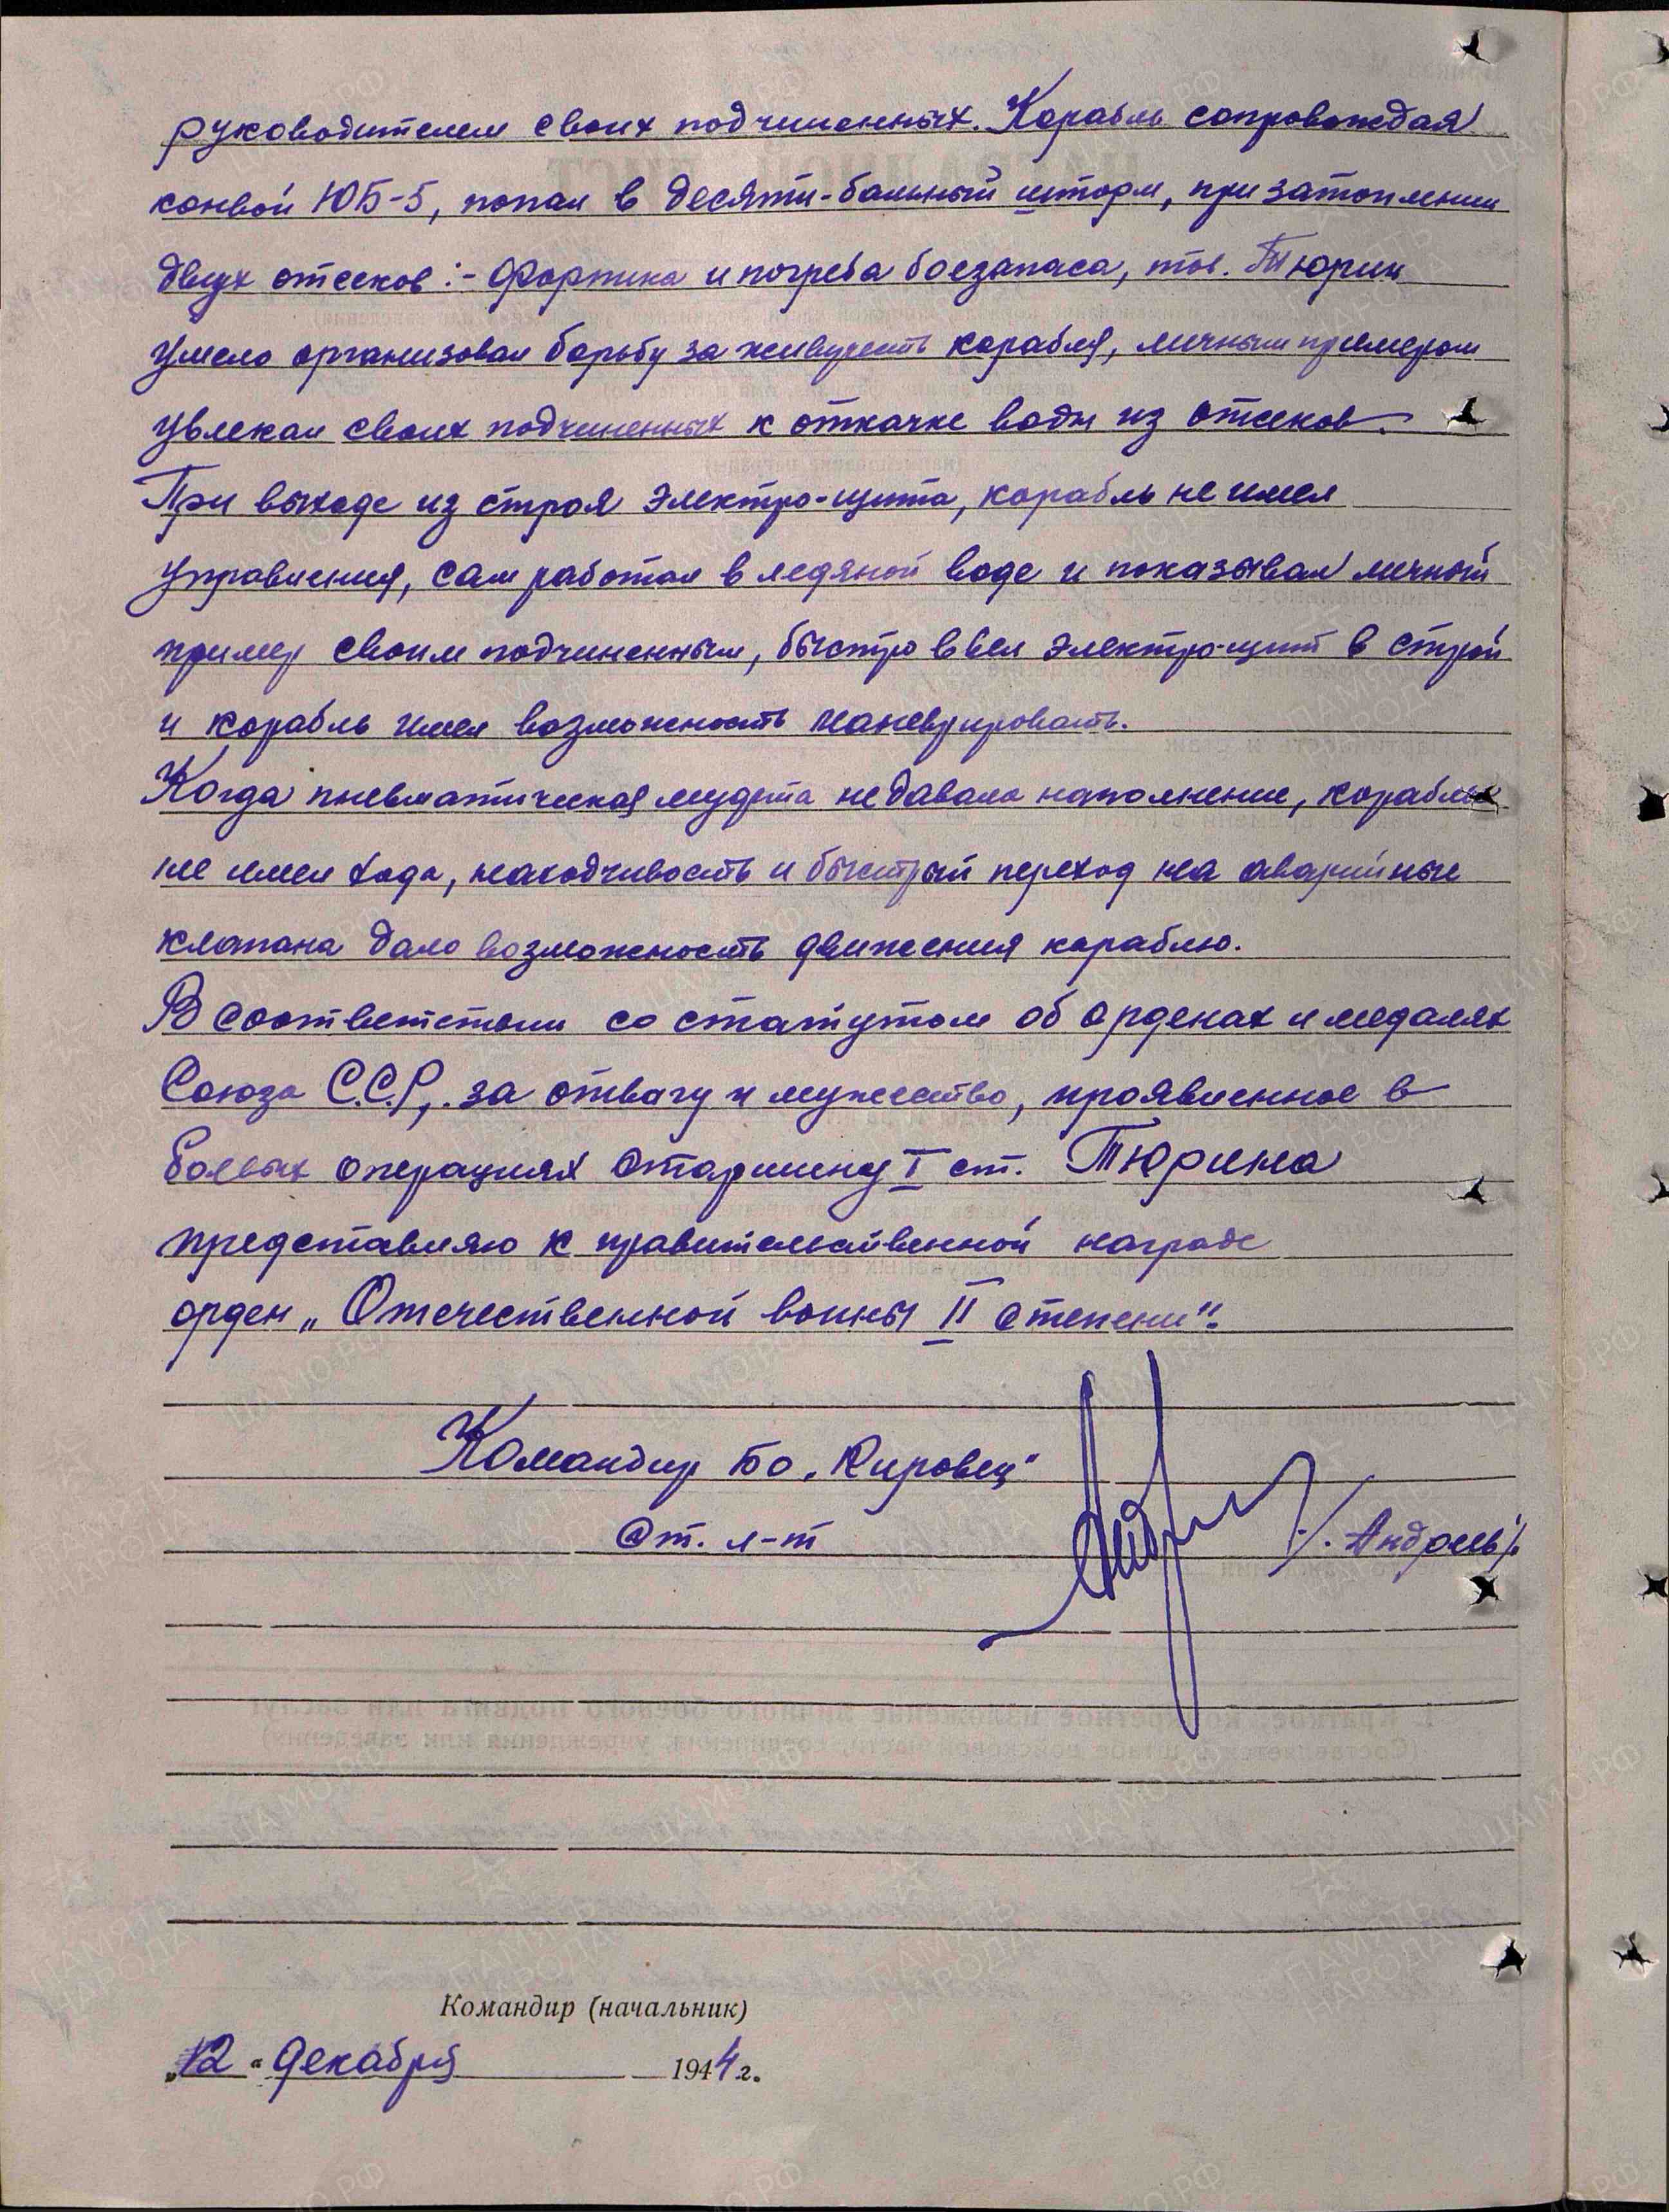 руководителем своих подчиненных. Корабль сопровождая
конвой ЮБ-5, попал в десяти-бальный шторм, при затоплении
двух отсеков:- Форпика и погреба боезапаса, тов. Тюрин
умело организовал борьбу за живучесть корабля, личным примером
увлекал своих подчиненных к откачке воды из отсеков.
При выходе из строя электро-щита, корабль не имел
управления, сам работал в ледяной воде и показывал личный
пример своим подчиненным, быстро ввел электро-щит в строй
и корабль имел возможность маневрировать.
Когда пневматическая муфта не давала наполнение, корабль
не имел хода, находчивость и быстрый переход на аварийные
клапана дало возможность движения кораблю.
В соответствии со статутом об орденах и медалях
Союза С.С.Р., за отвагу и мужество, проявленное в
боевых операциях старшину I ст. Тюрина
представляю к правительственной награде
орден „Отечественной войны II степени".
Командир БО „Кировец"
Ст. л-т /. Андреев/.
Командир (начальник)
„12" декабря 1944 г.